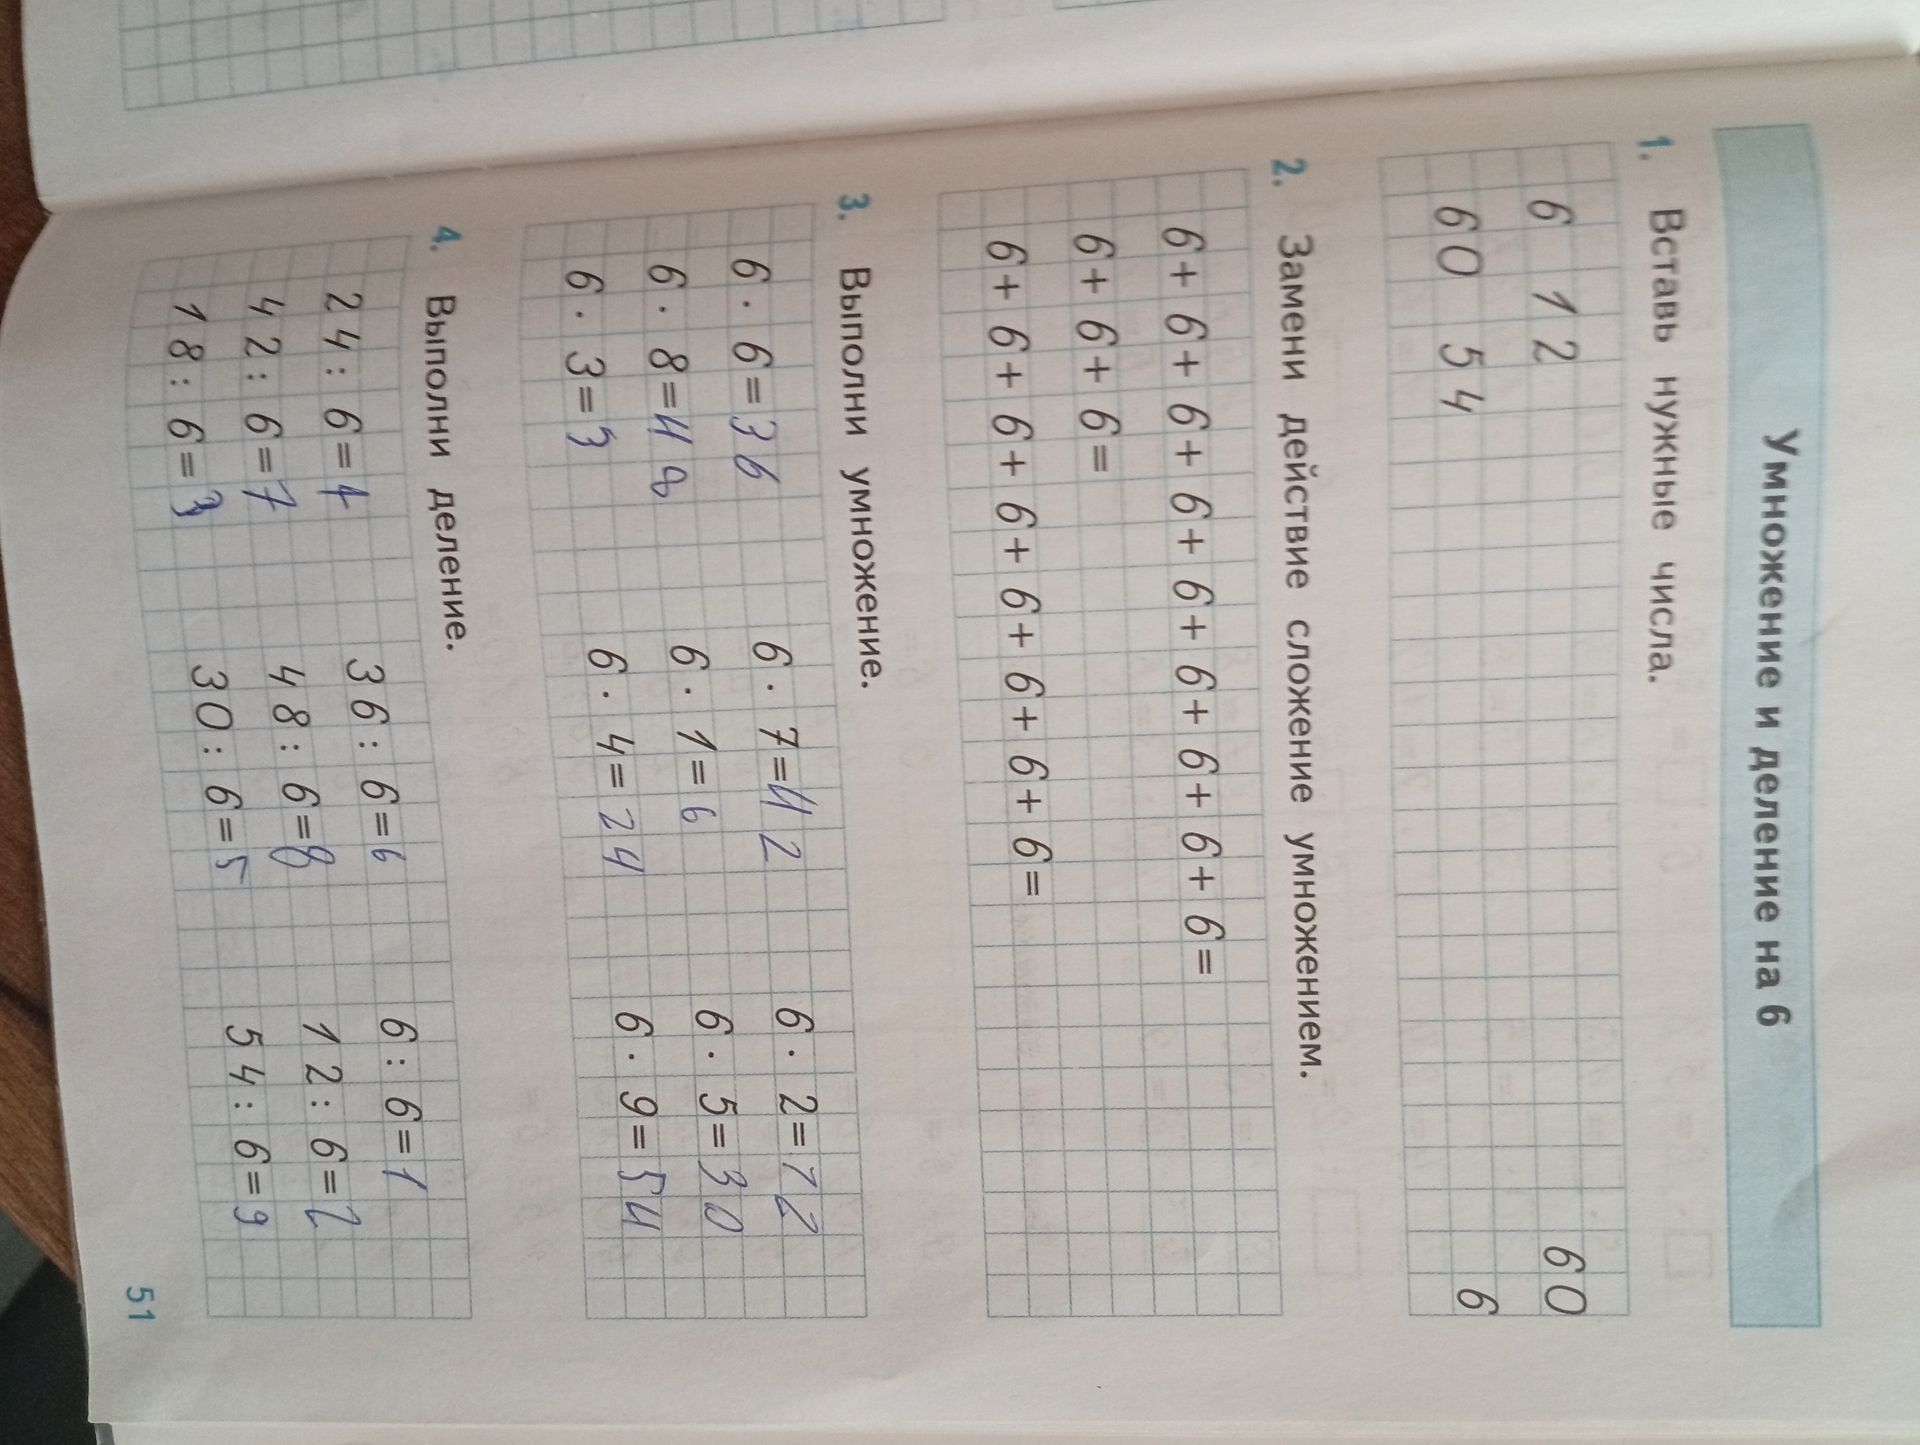 Умножение и деление на 6
1. Вставь нужные числа.
6 12 60
60 54 6
2. Замени действие сложение умножением.
6+6+6+6+6+6+6+6+6=
6+6+6=
6+6+6+6+6+6+6+6=
3. Выполни умножение.
6·6=36 6·7=42 6·2=12
6·8=48 6·1=6 6·5=30
6·3=3 6·4=24 6·9=54
4. Выполни деление.
24:6=4 36:6=6 6:6=1
42:6=7 48:6=8 12:6=2
18:6=3 30:6=5 54:6=9
51